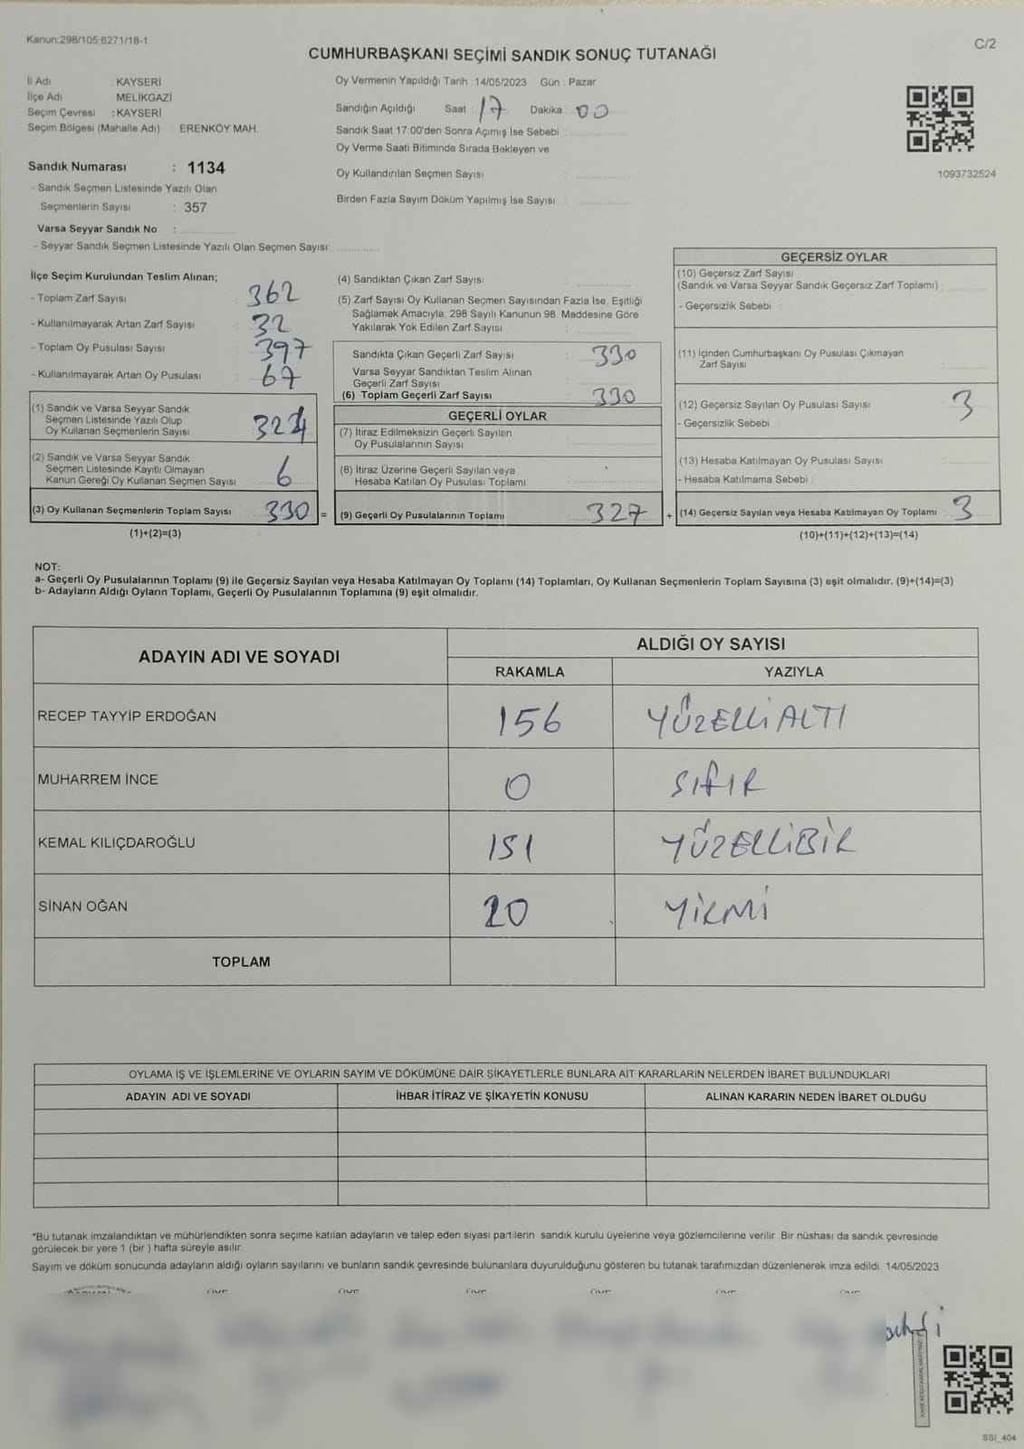 Kanun:298/105-6271/18-1
C/2
CUMHURBAŞKANI SEÇİMİ SANDIK SONUÇ TUTANAĞI
İl Adı : KAYSERİ
İlçe Adı MELİKGAZİ
Seçim Çevresi : KAYSERİ
Seçim Bölgesi (Mahalle Adı) ERENKÖY MAH.
Oy Vermenin Yapıldığı Tarih : 14/05/2023 Gün : Pazar
Sandığın Açıldığı Saat 17 Dakika 00
Sandık Saat 17:00'den Sonra Açımış İse Sebebi
Oy Verme Saati Bitiminde Sırada Bekleyen ve
Oy Kullandırılan Seçmen Sayısı
Birden Fazla Sayım Döküm Yapılmış İse Sayısı
1093732524
Sandık Numarası : 1134
- Sandık Seçmen Listesinde Yazılı Olan
Seçmenlerin Sayısı : 357
Varsa Seyyar Sandık No :
- Seyyar Sandık Seçmen Listesinde Yazılı Olan Seçmen Sayısı
İlçe Seçim Kurulundan Teslim Alınan;
- Toplam Zarf Sayısı 362
- Kullanılmayarak Artan Zarf Sayısı 32
- Toplam Oy Pusulası Sayısı 397
- Kullanılmayarak Artan Oy Pusulası 67
(1) Sandık ve Varsa Seyyar Sandık
Seçmen Listesinde Yazılı Olup
Oy Kullanan Seçmenlerin Sayısı 324
(2) Sandık ve Varsa Seyyar Sandık
Seçmen Listesinde Kayıtlı Olmayan
Kanun Gereği Oy Kullanan Seçmen Sayısı 6
(3) Oy Kullanan Seçmenlerin Toplam Sayısı 330 =
(1)+(2)=(3)
(4) Sandıktan Çıkan Zarf Sayısı
(5) Zarf Sayısı Oy Kullanan Seçmen Sayısından Fazla İse, Eşitliği
Sağlamak Amacıyla, 298 Sayılı Kanunun 98. Maddesine Göre
Yakılarak Yok Edilen Zarf Sayısı
Sandıkta Çıkan Geçerli Zarf Sayısı : 330
Varsa Seyyar Sandıktan Teslim Alınan
Geçerli Zarf Sayısı
(6) Toplam Geçerli Zarf Sayısı 330
GEÇERLİ OYLAR
(7) İtiraz Edilmeksizin Geçerli Sayılan
Oy Pusulalarının Sayısı
(8) İtiraz Üzerine Geçerli Sayılan veya
Hesaba Katılan Oy Pusulası Toplamı
(9) Geçerli Oy Pusulalarının Toplamı 327 +
GEÇERSİZ OYLAR
(10) Geçersiz Zarf Sayısı
(Sandık ve Varsa Seyyar Sandık Geçersiz Zarf Toplamı)
- Geçersizlik Sebebi :
(11) İçinden Cumhurbaşkanı Oy Pusulası Çıkmayan
Zarf Sayısı
(12) Geçersiz Sayılan Oy Pusulası Sayısı 3
- Geçersizlik Sebebi :
(13) Hesaba Katılmayan Oy Pusulası Sayısı
- Hesaba Katılmama Sebebi :
(14) Geçersiz Sayılan veya Hesaba Katılmayan Oy Toplamı 3
(10)+(11)+(12)+(13)=(14)
NOT:
a- Geçerli Oy Pusulalarının Toplamı (9) ile Geçersiz Sayılan veya Hesaba Katılmayan Oy Toplamı (14) Toplamları, Oy Kullanan Seçmenlerin Toplam Sayısına (3) eşit olmalıdır. (9)+(14)=(3)
b- Adayların Aldığı Oyların Toplamı, Geçerli Oy Pusulalarının Toplamına (9) eşit olmalıdır.
ADAYIN ADI VE SOYADI ALDIĞI OY SAYISI
RAKAMLA YAZIYLA
RECEP TAYYİP ERDOĞAN 156 YÜZELLİALTI
MUHARREM İNCE 0 SIFIR
KEMAL KILIÇDAROĞLU 151 YÜZELLİBİR
SİNAN OĞAN 20 YİRMİ
TOPLAM
OYLAMA İŞ VE İŞLEMLERİNE VE OYLARIN SAYIM VE DÖKÜMÜNE DAİR ŞİKAYETLERLE BUNLARA AİT KARARLARIN NELERDEN İBARET BULUNDUKLARI
ADAYIN ADI VE SOYADI İHBAR İTİRAZ VE ŞİKAYETİN KONUSU ALINAN KARARIN NEDEN İBARET OLDUĞU
*Bu tutanak imzalandıktan ve mühürlendikten sonra seçime katılan adayların ve talep eden siyasi partilerin sandık kurulu üyelerine veya gözlemcilerine verilir. Bir nüshası da sandık çevresinde
görülecek bir yere 1 (bir) hafta süreyle asılır.
Sayım ve döküm sonucunda adayların aldığı oyların sayılarını ve bunların sandık çevresinde bulunanlara duyurulduğunu gösteren bu tutanak tarafımızdan düzenlenerek imza edildi. 14/05/2023
SSI_404